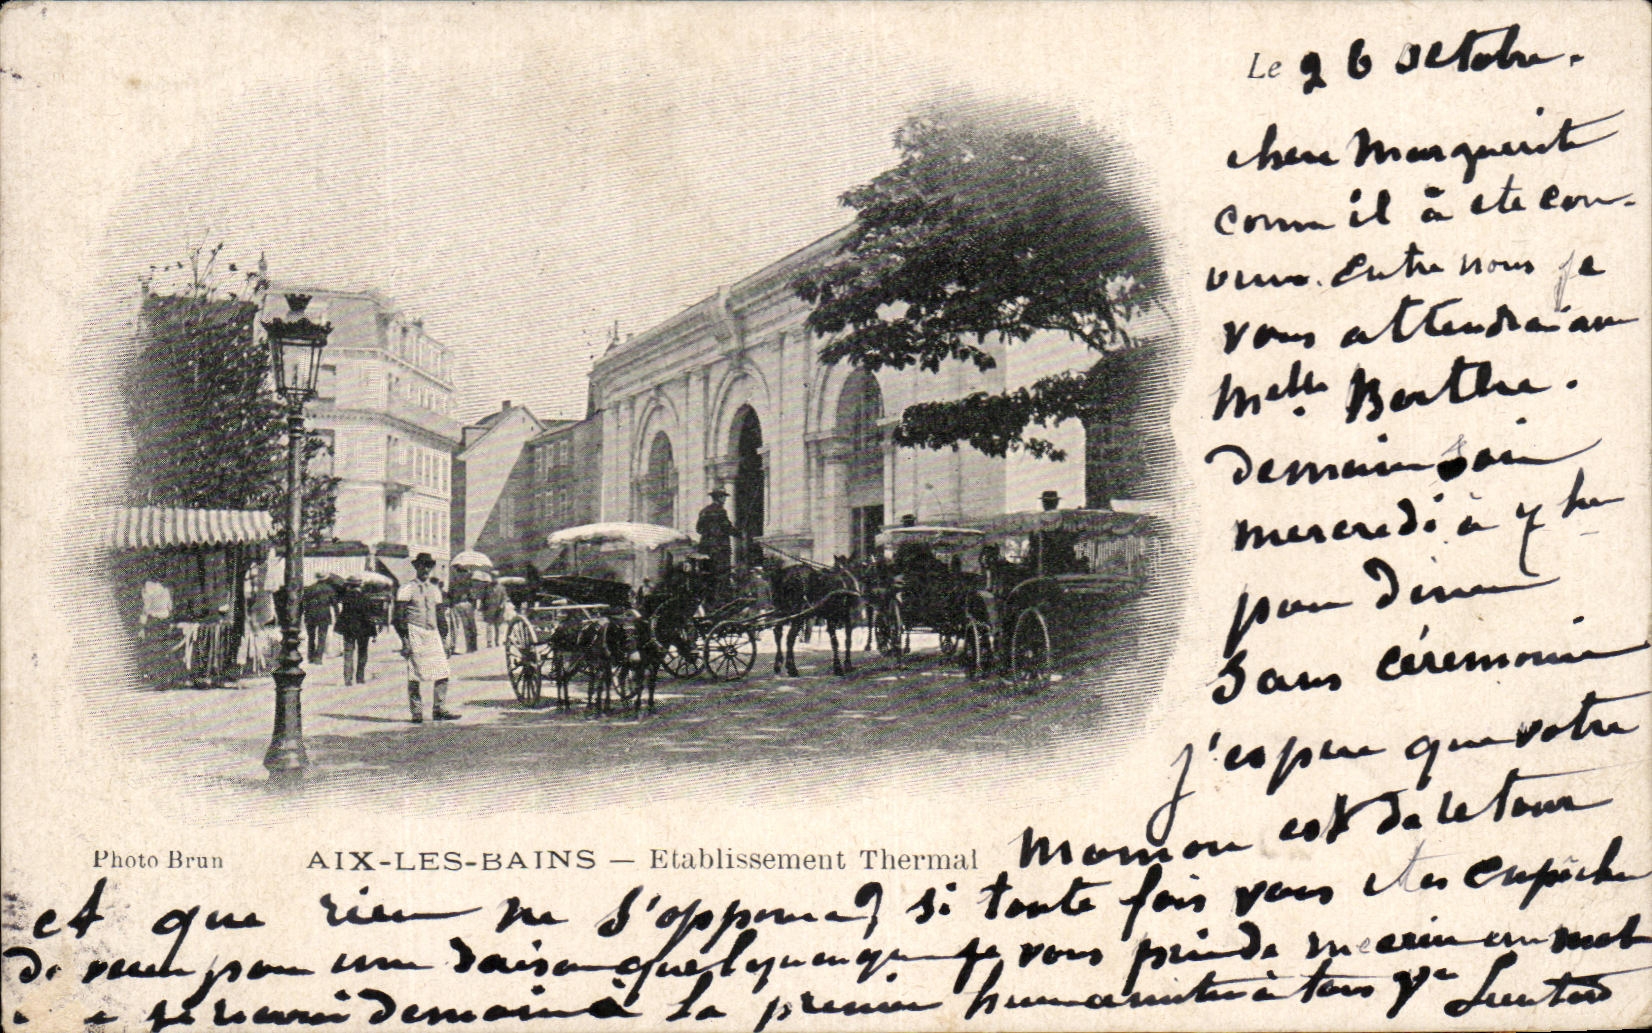 Le 26 octobre.
chere Marguerite
comme il à ete con-
venu. entre nous je
vous attendrai avec
Melle Berthe.
demain soir
mercredi à 7 h
pour diner
Sans céremonie
j'espere que votre
Maman est de retour
Photo Brun AIX-LES-BAINS — Etablissement Thermal
et que rien ne s'oppose si toute fois vous etes empêcher
de venir pour une raison quelquonque je vous prie de m'ecrire un mot
je recevrai demain à la premiere heure à tous